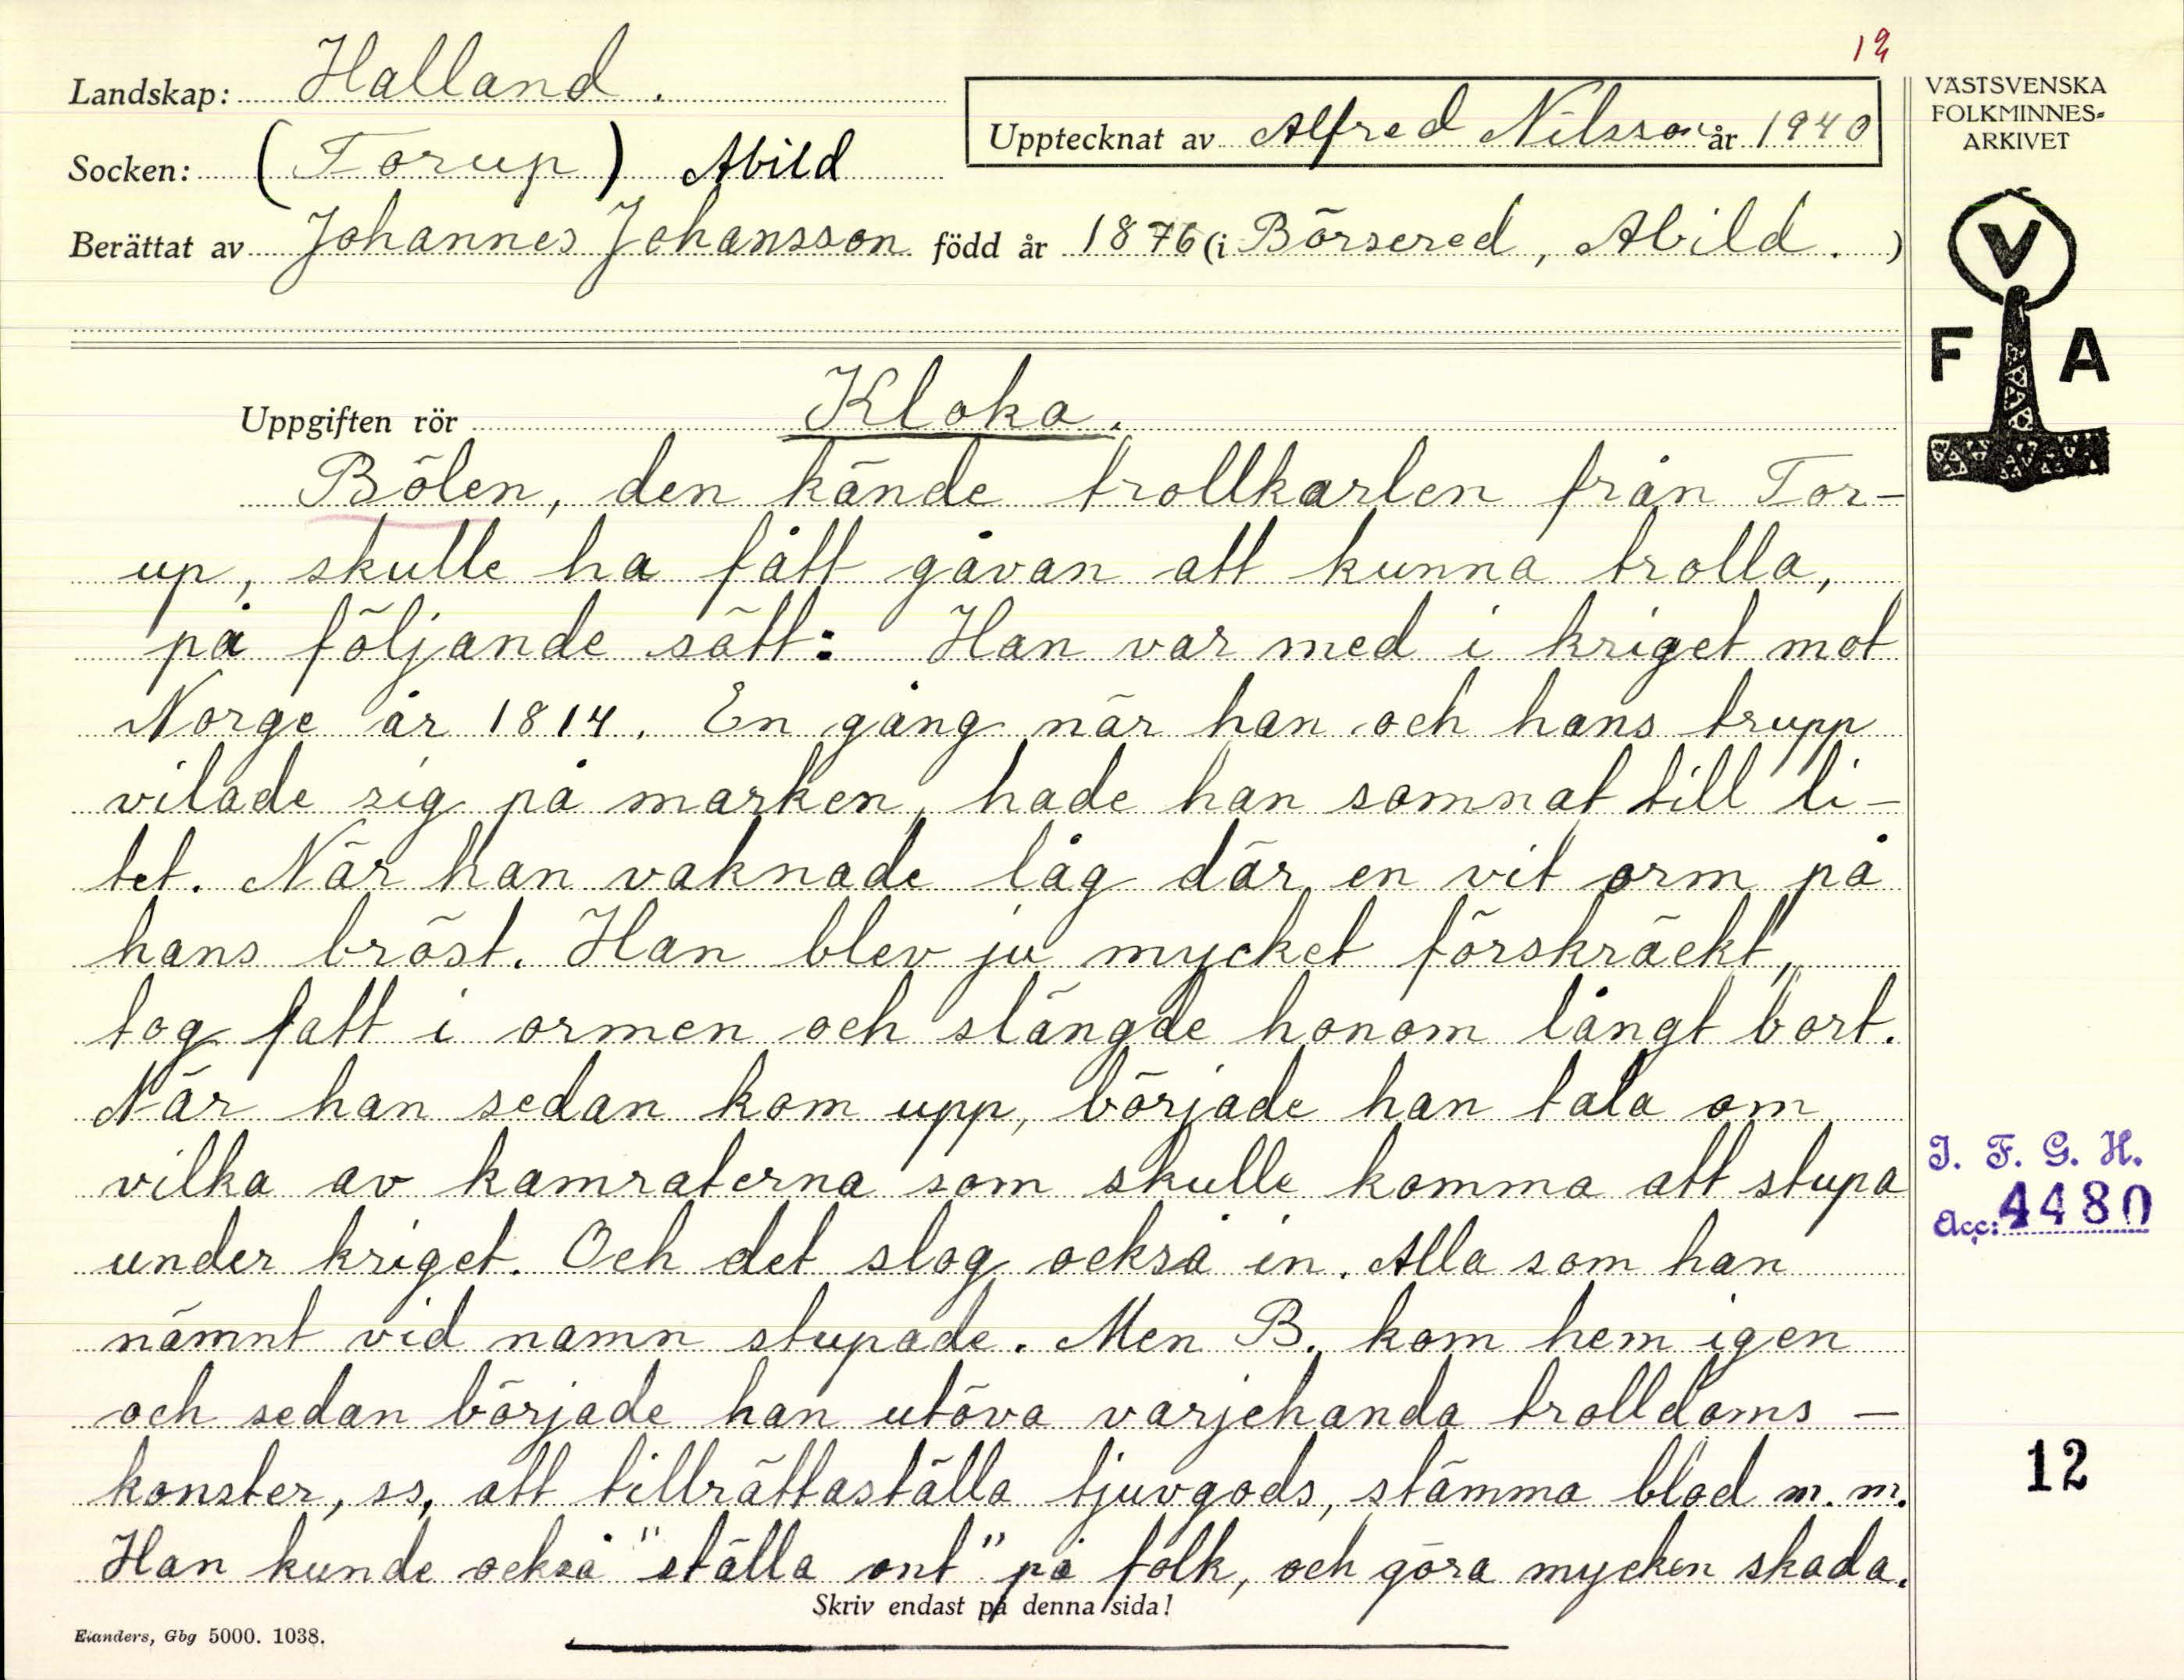 12
Landskap: Halland.
VÄSTSVENSKA
FOLKMINNES=
ARKIVET
Upptecknat av Alfred Nilsson år 1940
Socken: (Torup) Abild
Berättat av Johannes Johansson född år 1876 (i Börsered, Abild.)
V
F A
Uppgiften rör Kloka.
Bölen, den kände trollkarlen från Tor-
up, skulle ha fått gåvan att kunna trolla,
på följande sätt: Han var med i kriget mot
Norge år 1814. En gång när han och hans trupp
vilade sig på marken, hade han somnat till li-
tet. När han vaknade låg där en vit orm på
hans bröst. Han blev ju mycket förskräckt,
tog fatt i ormen och slängde honom långt bort.
När han sedan kom upp, började han tala om
vilka av kamraterna som skulle komma att stupa
under kriget. Och det slog också in. Alla som han
nämnt vid namn stupade. Men B. kom hem igen
och sedan började han utöva varjehanda trolldoms-
konster, ss, att tillrättaställa tjuvgods, stämma blod m.m.
Han kunde också "ställa ont" på folk, och göra mycken skada.
I. F. G. H.
Acc: 4480
12
Skriv endast på denna sida!
Elanders, Gbg 5000. 1038.